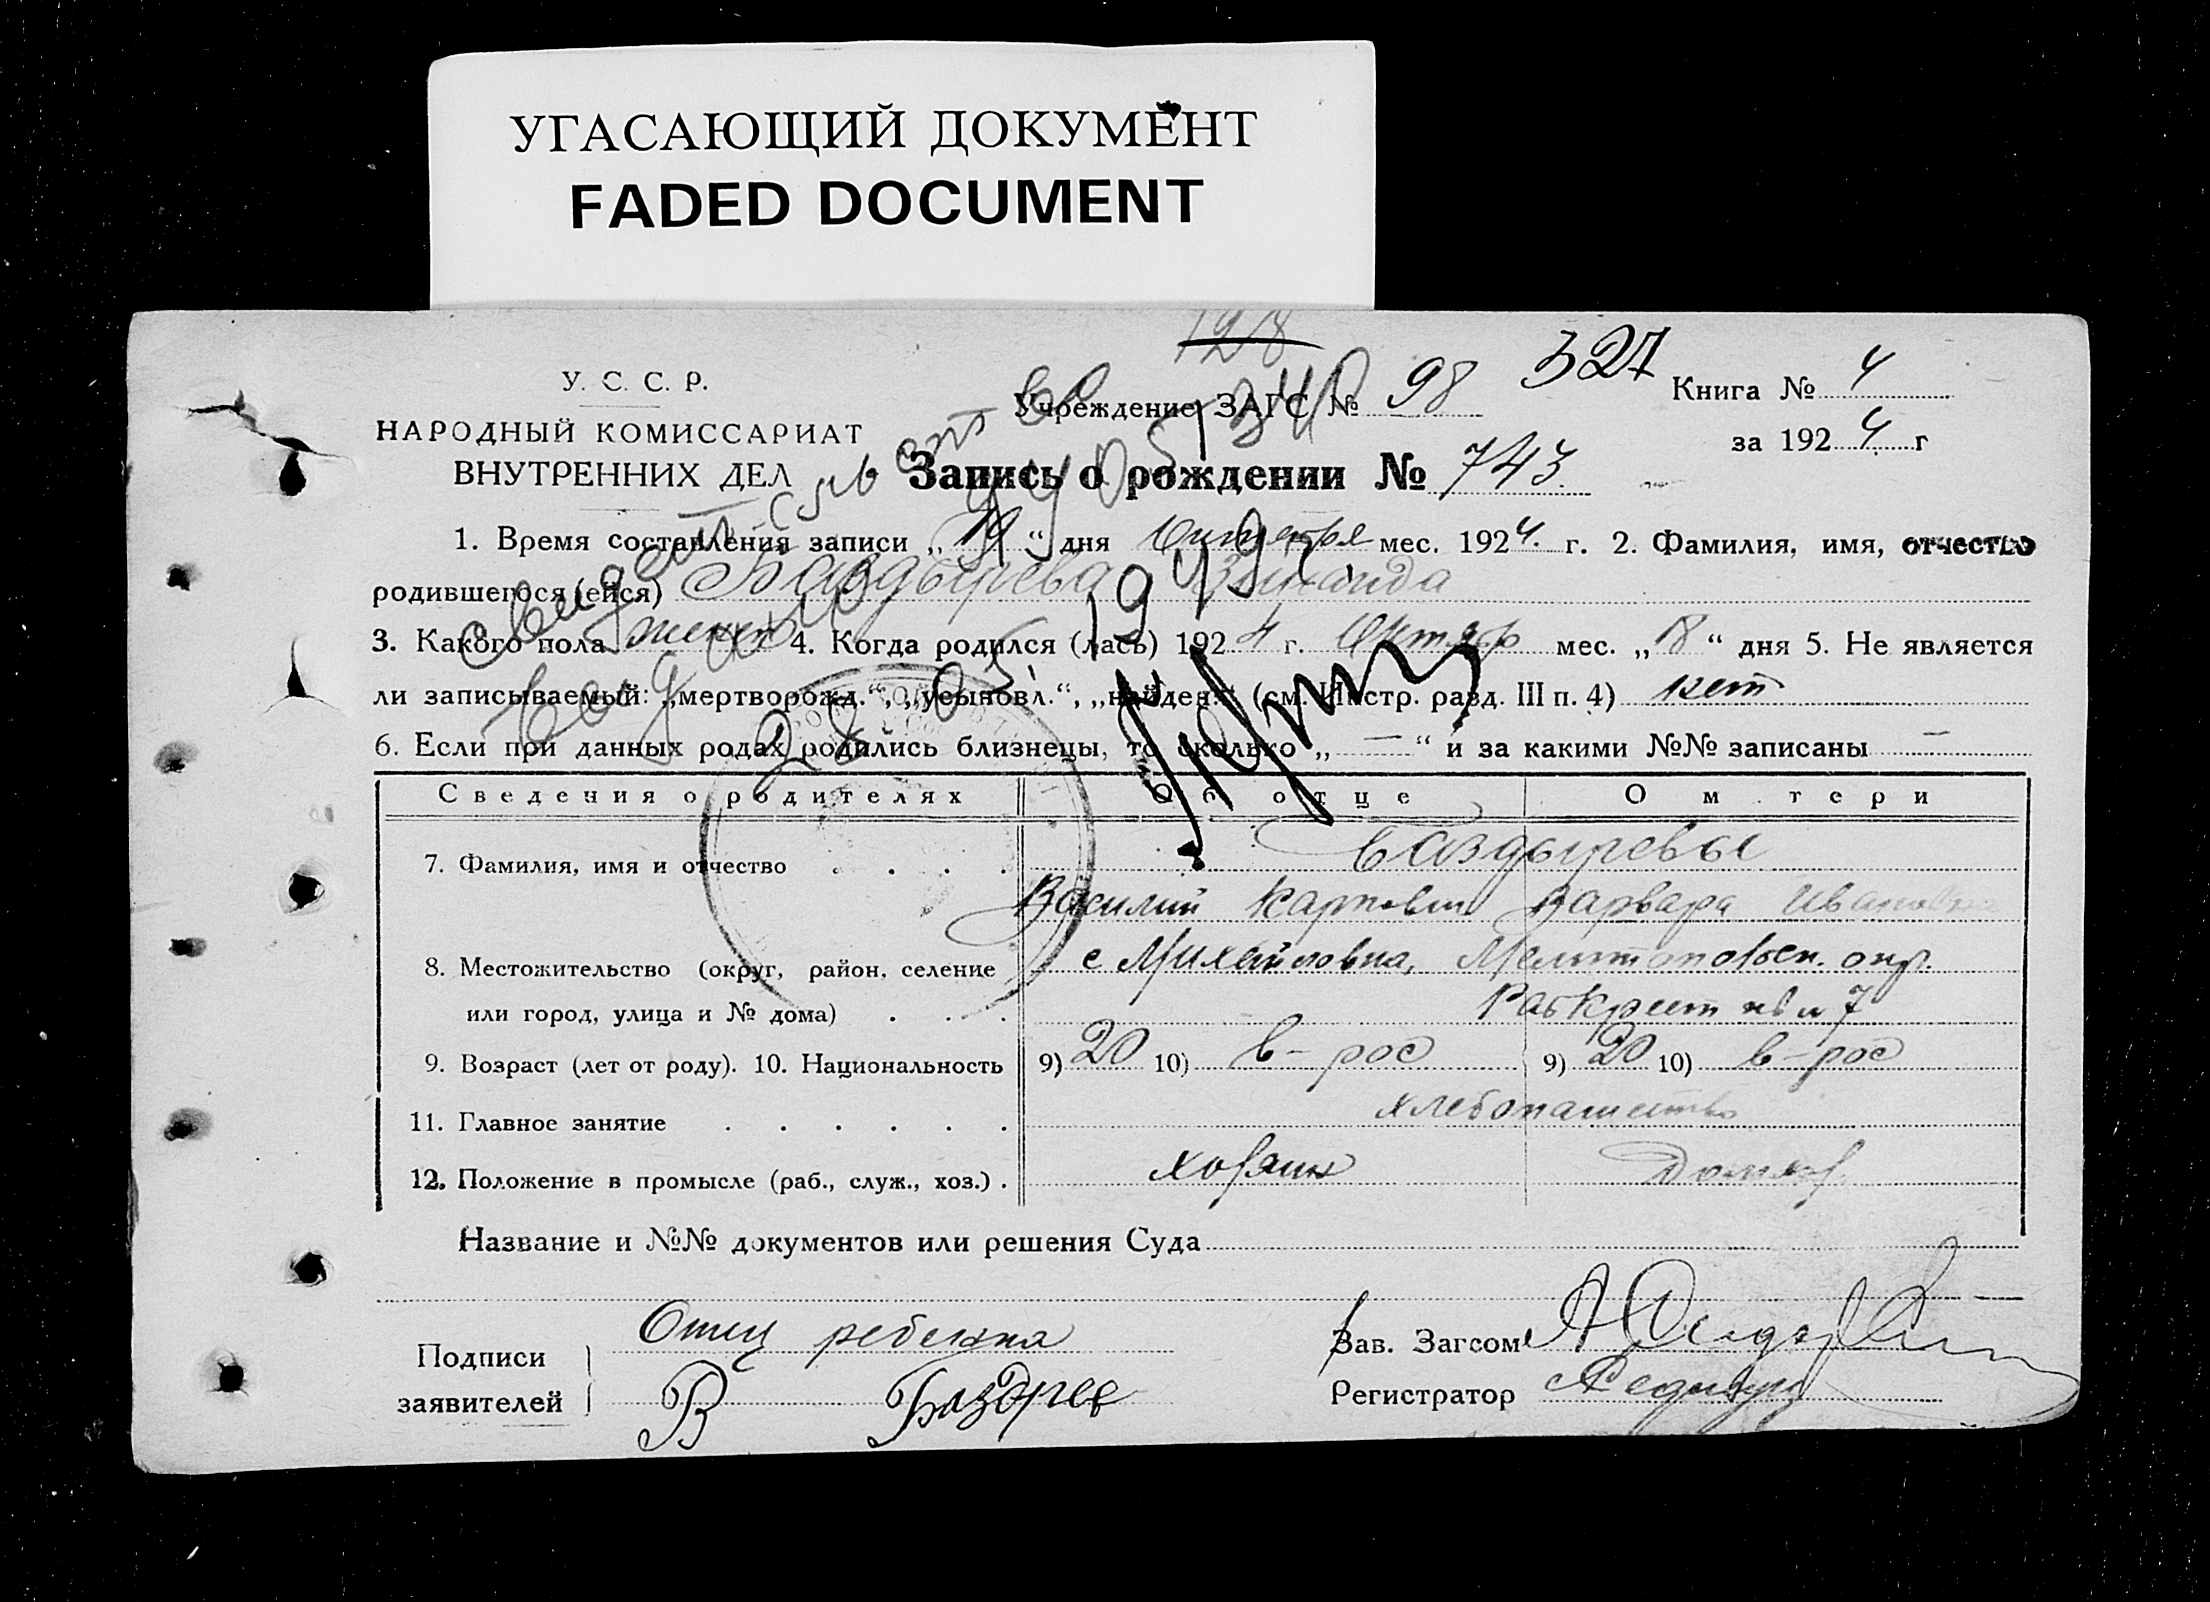 УГАСАЮЩИЙ ДОКУМЕНТ
FADED DOCUMENT
128
У. С. С. Р.
НАРОДНЫЙ КОМИССАРИАТ
ВНУТРЕННИХ ДЕЛ
Учреждение ЗАГС № 98 327 Книга № 4
за 1924 г
Запись о рождении № 743
1. Время составления записи „19“ дня Октября мес. 1924 г. 2. Фамилия, имя, отчество
родившегося (ейся) Баздырева Зинаида
3. Какого пола женск 4. Когда родился (лась) 1924 г. Октябр мес. „18“ дня 5. Не является
ли записываемый: „мертворожд.“, „усыновл.“, „найден.“ (см. Инстр. разд. III п. 4) нет
6. Если при данных родах родились близнецы, то сколько „ — “ и за какими №№ записаны —
Сведения о родителях Об отце О м тери
7. Фамилия, имя и отчество Баздыревы
Василий Карпович Варвара Ивановна
8. Местожительство (округ, район, селение с Михайловка, Мелитопольск. окр.
или город, улица и № дома) 7
9. Возраст (лет от роду). 10. Национальность 9) 20 10) в-рос 9) 20 10) в-рос
11. Главное занятие хлебопашество
12. Положение в промысле (раб., служ., хоз.) хозяин домхоз.
Название и №№ документов или решения Суда
Подписи
заявителей
Отец ребенка
В Баздрев
Зав. Загсом
Регистратор
свидетельство
выдано
28 05 1919